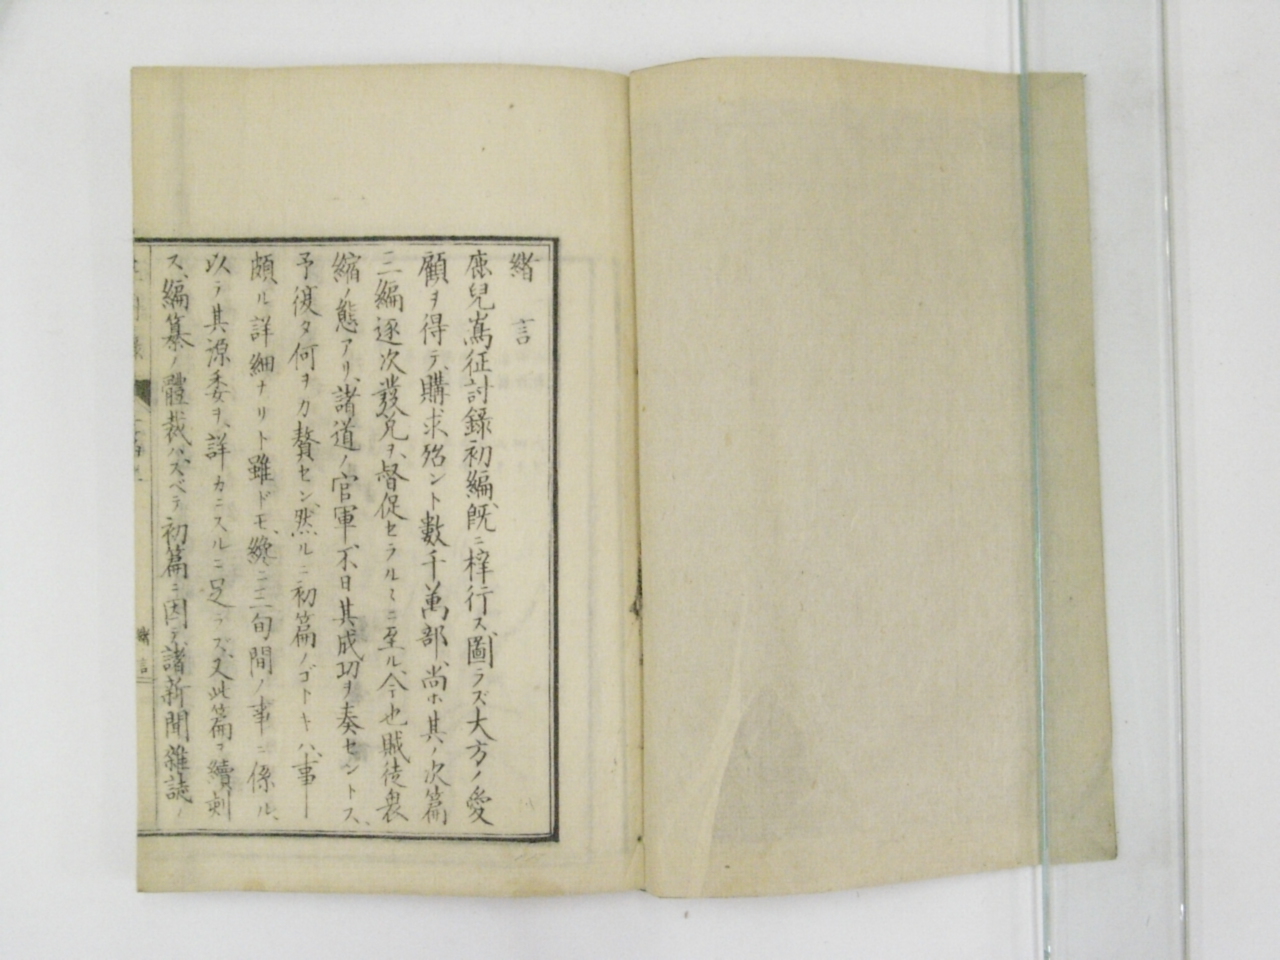 緒言
鹿兒嶌征討録初編、既ニ梓行ス、圖ラズ大方ノ愛
顧ヲ得テ、購求殆ント數千萬部、尚ホ其ノ次篇
三編逐次發兌ヲ、督促セラルヽニ至ル、今也賊徒衰
縮ノ態アリ、諸道ノ官軍、不日其成功ヲ奏セントス、
予復タ何ヲカ贅セン、然ルニ初篇ノゴトキハ、事
頗ル詳細ナリト雖ドモ、纔ニ二旬間ノ事ニ係ル、
以テ其源委ヲ、詳カニスルニ足ラズ、又此篇ヲ續刻
ス、編纂ノ體裁ハ、スベテ初篇ニ因テ、諸新聞雜誌ノ
緒言